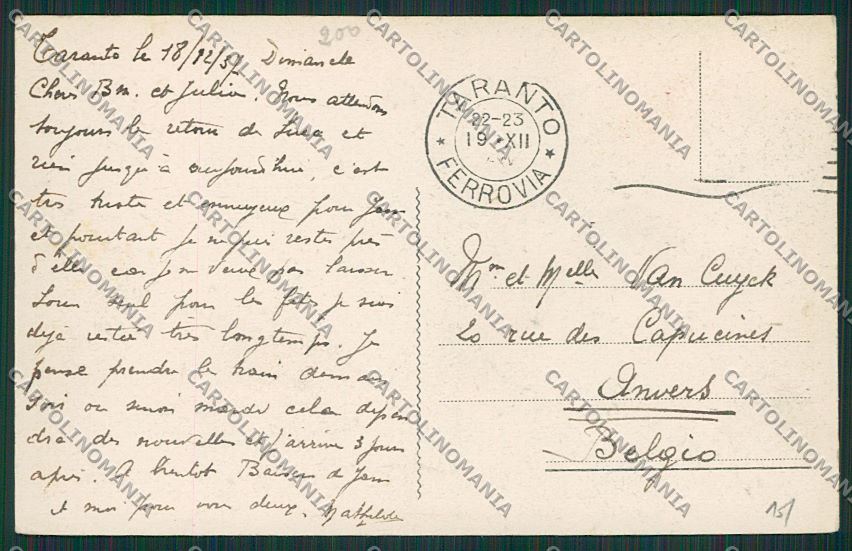 Taranto le 18/12/37 Dimanche
Chers Bm. et Julia. Nous attendons
toujours le retour de Luca et
rien jusqu'à aujourd'hui, c'est
très triste et ennuyeux pour Jean
et pourtant je ne puis rester près
d'elle car je ne veux pas laisser
Louis seul pour les fêtes je suis
déjà restée très longtemps. Je
pense prendre le train demain
soir ou sinon mardi cela dépen
dra des nouvelles et j'arrive 3 jours
après. A bientôt Baisers de Jean
et moi pour vous deux. Mathilde
200
TARANTO
22-23
19 ·XII
FERROVIA
Mr et Melle Van Cuyck
20 rue des Capucines
Anvers
Belgio
15/
CARTOLINOMANIA